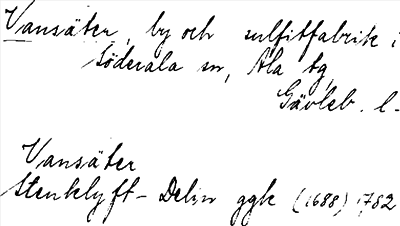 Vansäter, by och sulfitfabrik i
Söderala sn, Ala tg,
Gävleb. l.
Vansäter
Stenklyft - Delin ggk (1688) 1782